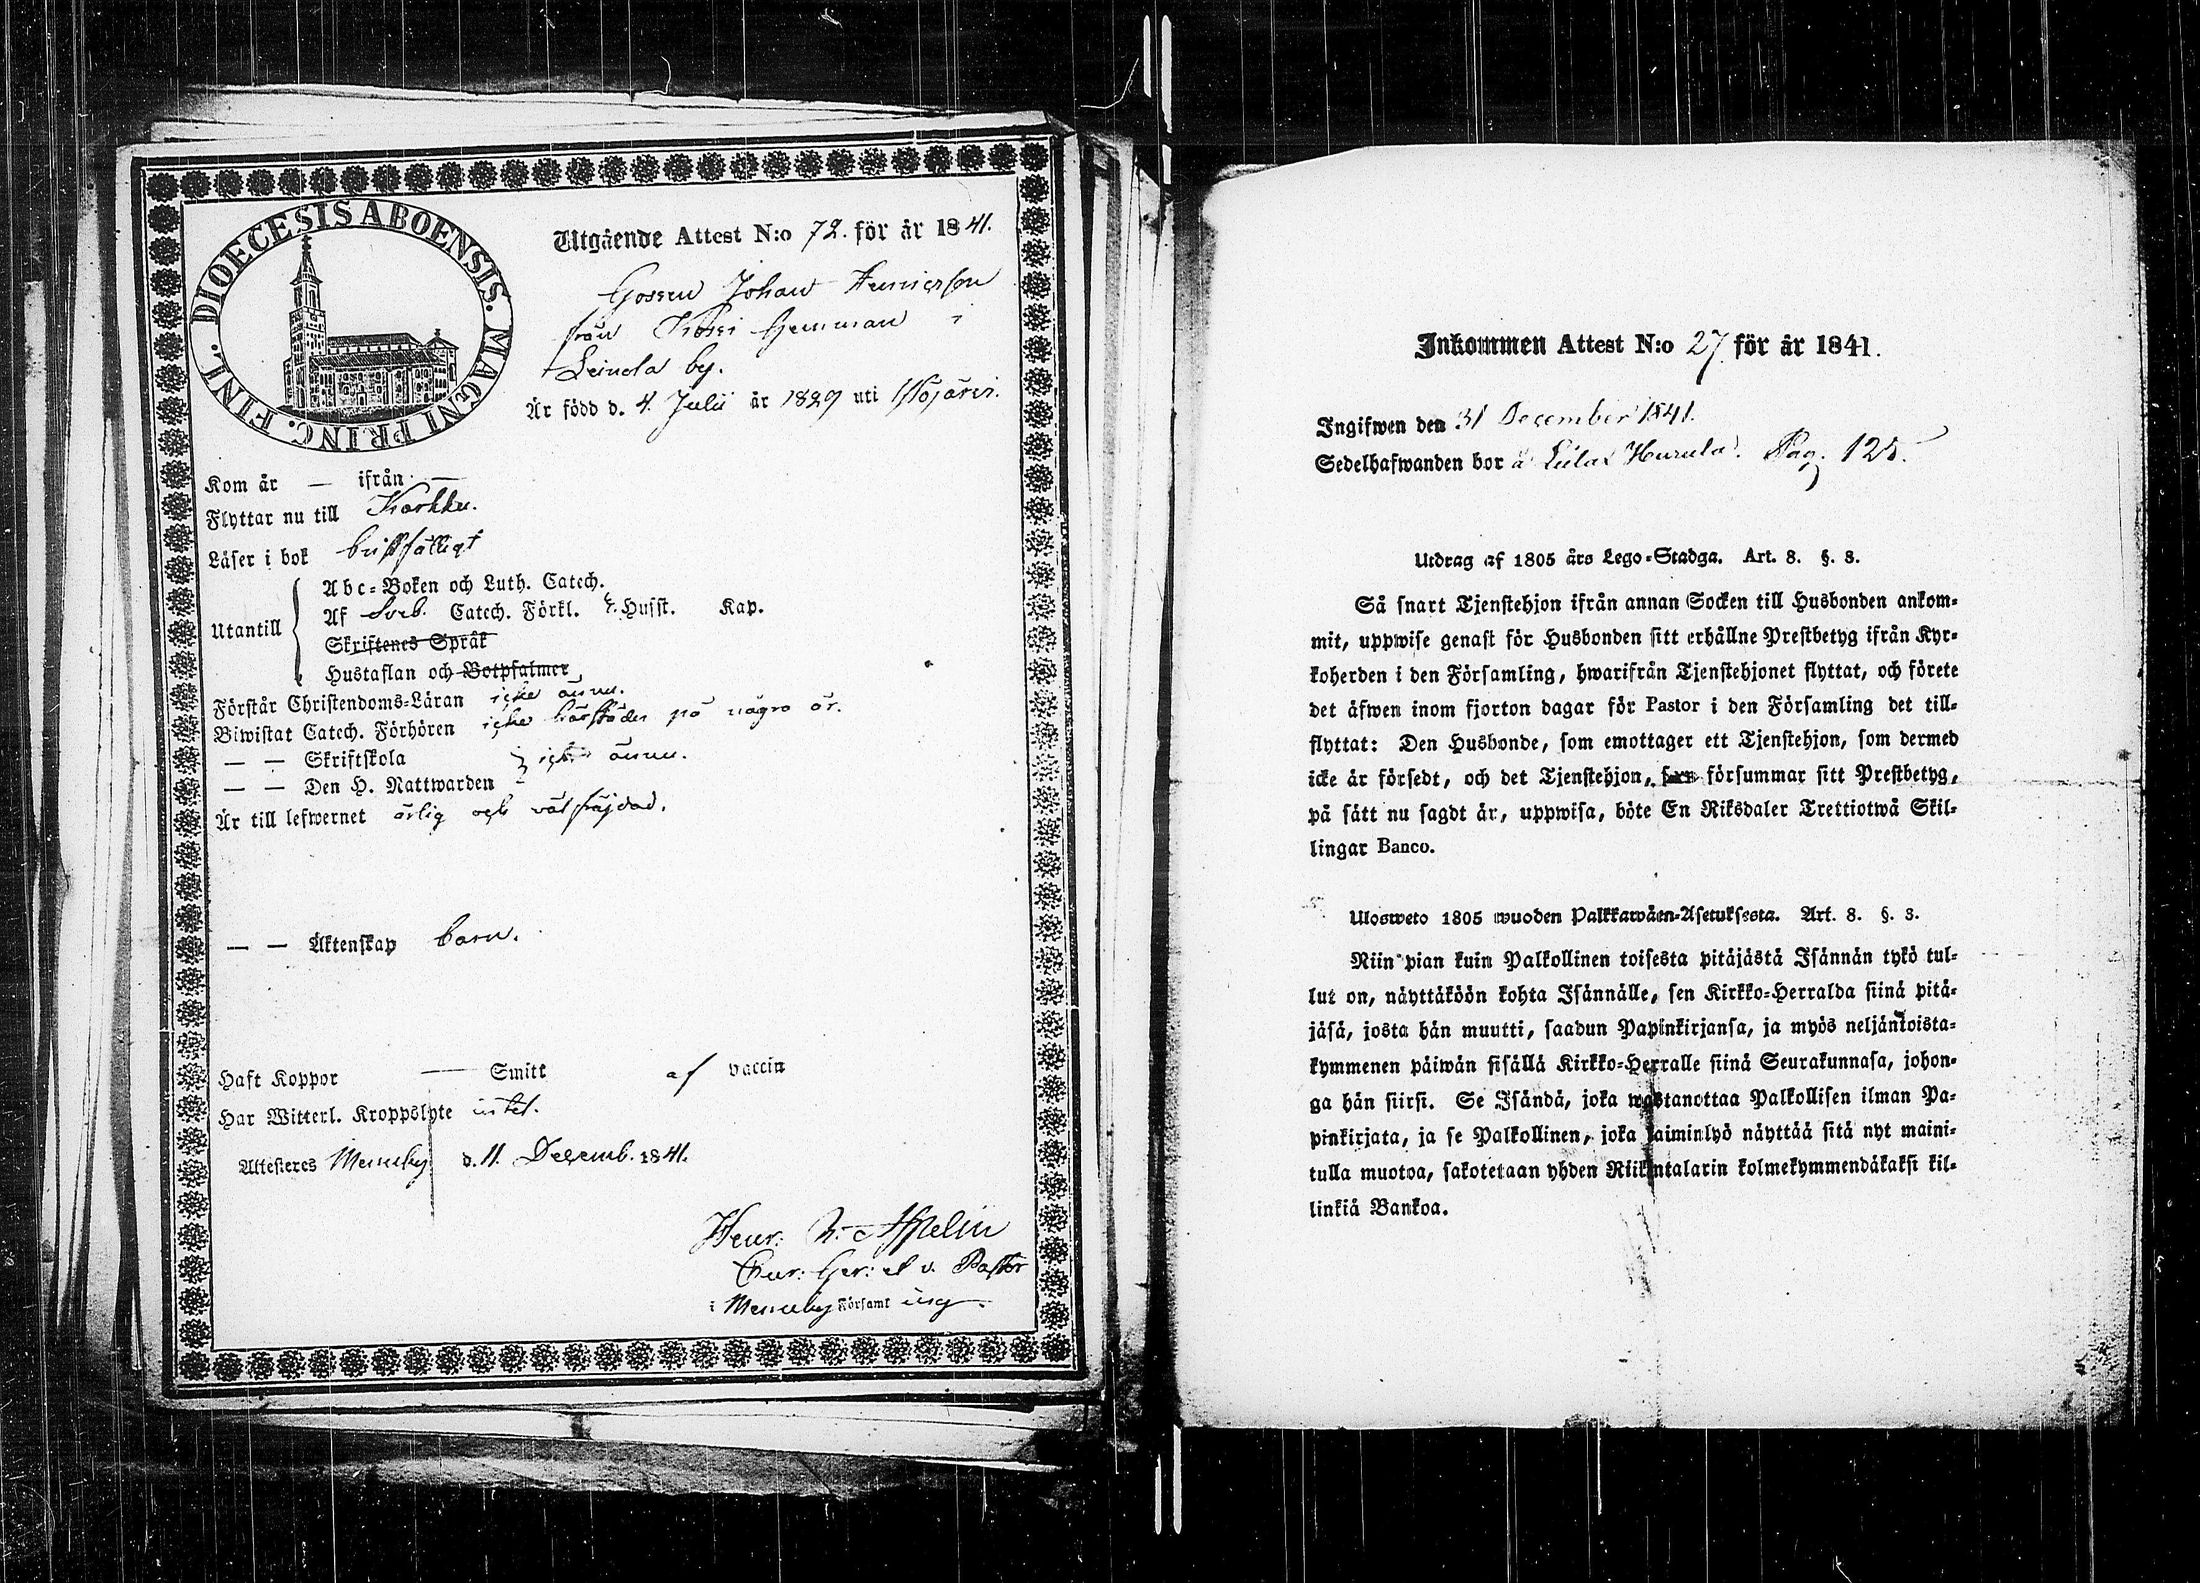 DIOECESIS ABOENSIS. MAGNI PRINC. FINL.
Utgående Attest N:o 72. för år 1841.
Gossen Johan
från Kossi Hemman i
Leinola by.
Är född d. 4. Julii år 1829 uti
Kom år — ifrån —
Flyttar nu till Karkku.
Läser i bok bristfälligt
Utantill
Abc-Boken och Luth. Catech.
Af Sveb. Catech. Förkl. Husst. Kap.
Skriftenes Språk
Hustaflan och Botpsalmer
Förstår Christendoms-Läran icke ännu.
Biwistat Catech. Förhören icke härstädes på några år.
— — Skriftskola
— — Den H. Nattwarden } icke ännu.
Är till lefwernet ärlig och välfräjdad.
— — Äktenskap barn.
Haft Koppor — Smitt af vaccin
Har Witterl. Kroppslyte intet.
Attesteres Messuby d. 11. Decemb. 1841.
Henr. Aspelin
v. Pastor
i Messuby Församling.
Inkommen Attest N:o 27 för år 1841.
Ingifwen den 31 December 1841.
Sedelhafwanden bor å Hurula. Pag. 125.
Utdrag af 1805 års Lego-Stadga. Art. 8. §. 3.
Så snart Tjenstehjon ifrån annan Socken till Husbonden ankom-
mit, uppwise genast för Husbonden sitt erhållne Prestbetyg ifrån Kyr-
koherden i den Församling, hwarifrån Tjenstehjonet flyttat, och förete
det äfwen inom fjorton dagar för Pastor i den Församling det till-
flyttat: Den Husbonde, som emottager ett Tjenstehjon, som dermed
icke är försedt, och det Tjenstehjon, som försummar sitt Prestbetyg,
på sätt nu sagdt är, uppwisa, böte En Riksdaler Trettiotwå Skil-
lingar Banco.
Ulosweto 1805 wuoden Palkkawäen-Asetuksesta. Art. 8. §. 3.
Niin pian kuin Palkollinen toisesta pitäjästä Isännän tykö tul-
lut on, näyttäköön kohta Isännälle, sen Kirkko-Herralda siinä pitä-
jäsä, josta hän muutti, saadun Papinkirjansa, ja myös neljäntoista-
kymmenen päiwän sisällä Kirkko-Herralle siinä Seurakunnasa, johon-
ga hän siirsi. Se Isändä, joka wastanottaa Palkollisen ilman Pa-
pinkirjata, ja se Palkollinen, joka laiminlyö näyttää sitä nyt maini-
tulla muotoa, sakotetaan yhden Riikintalarin kolmekymmendäkaksi kil-
linkiä Bankoa.